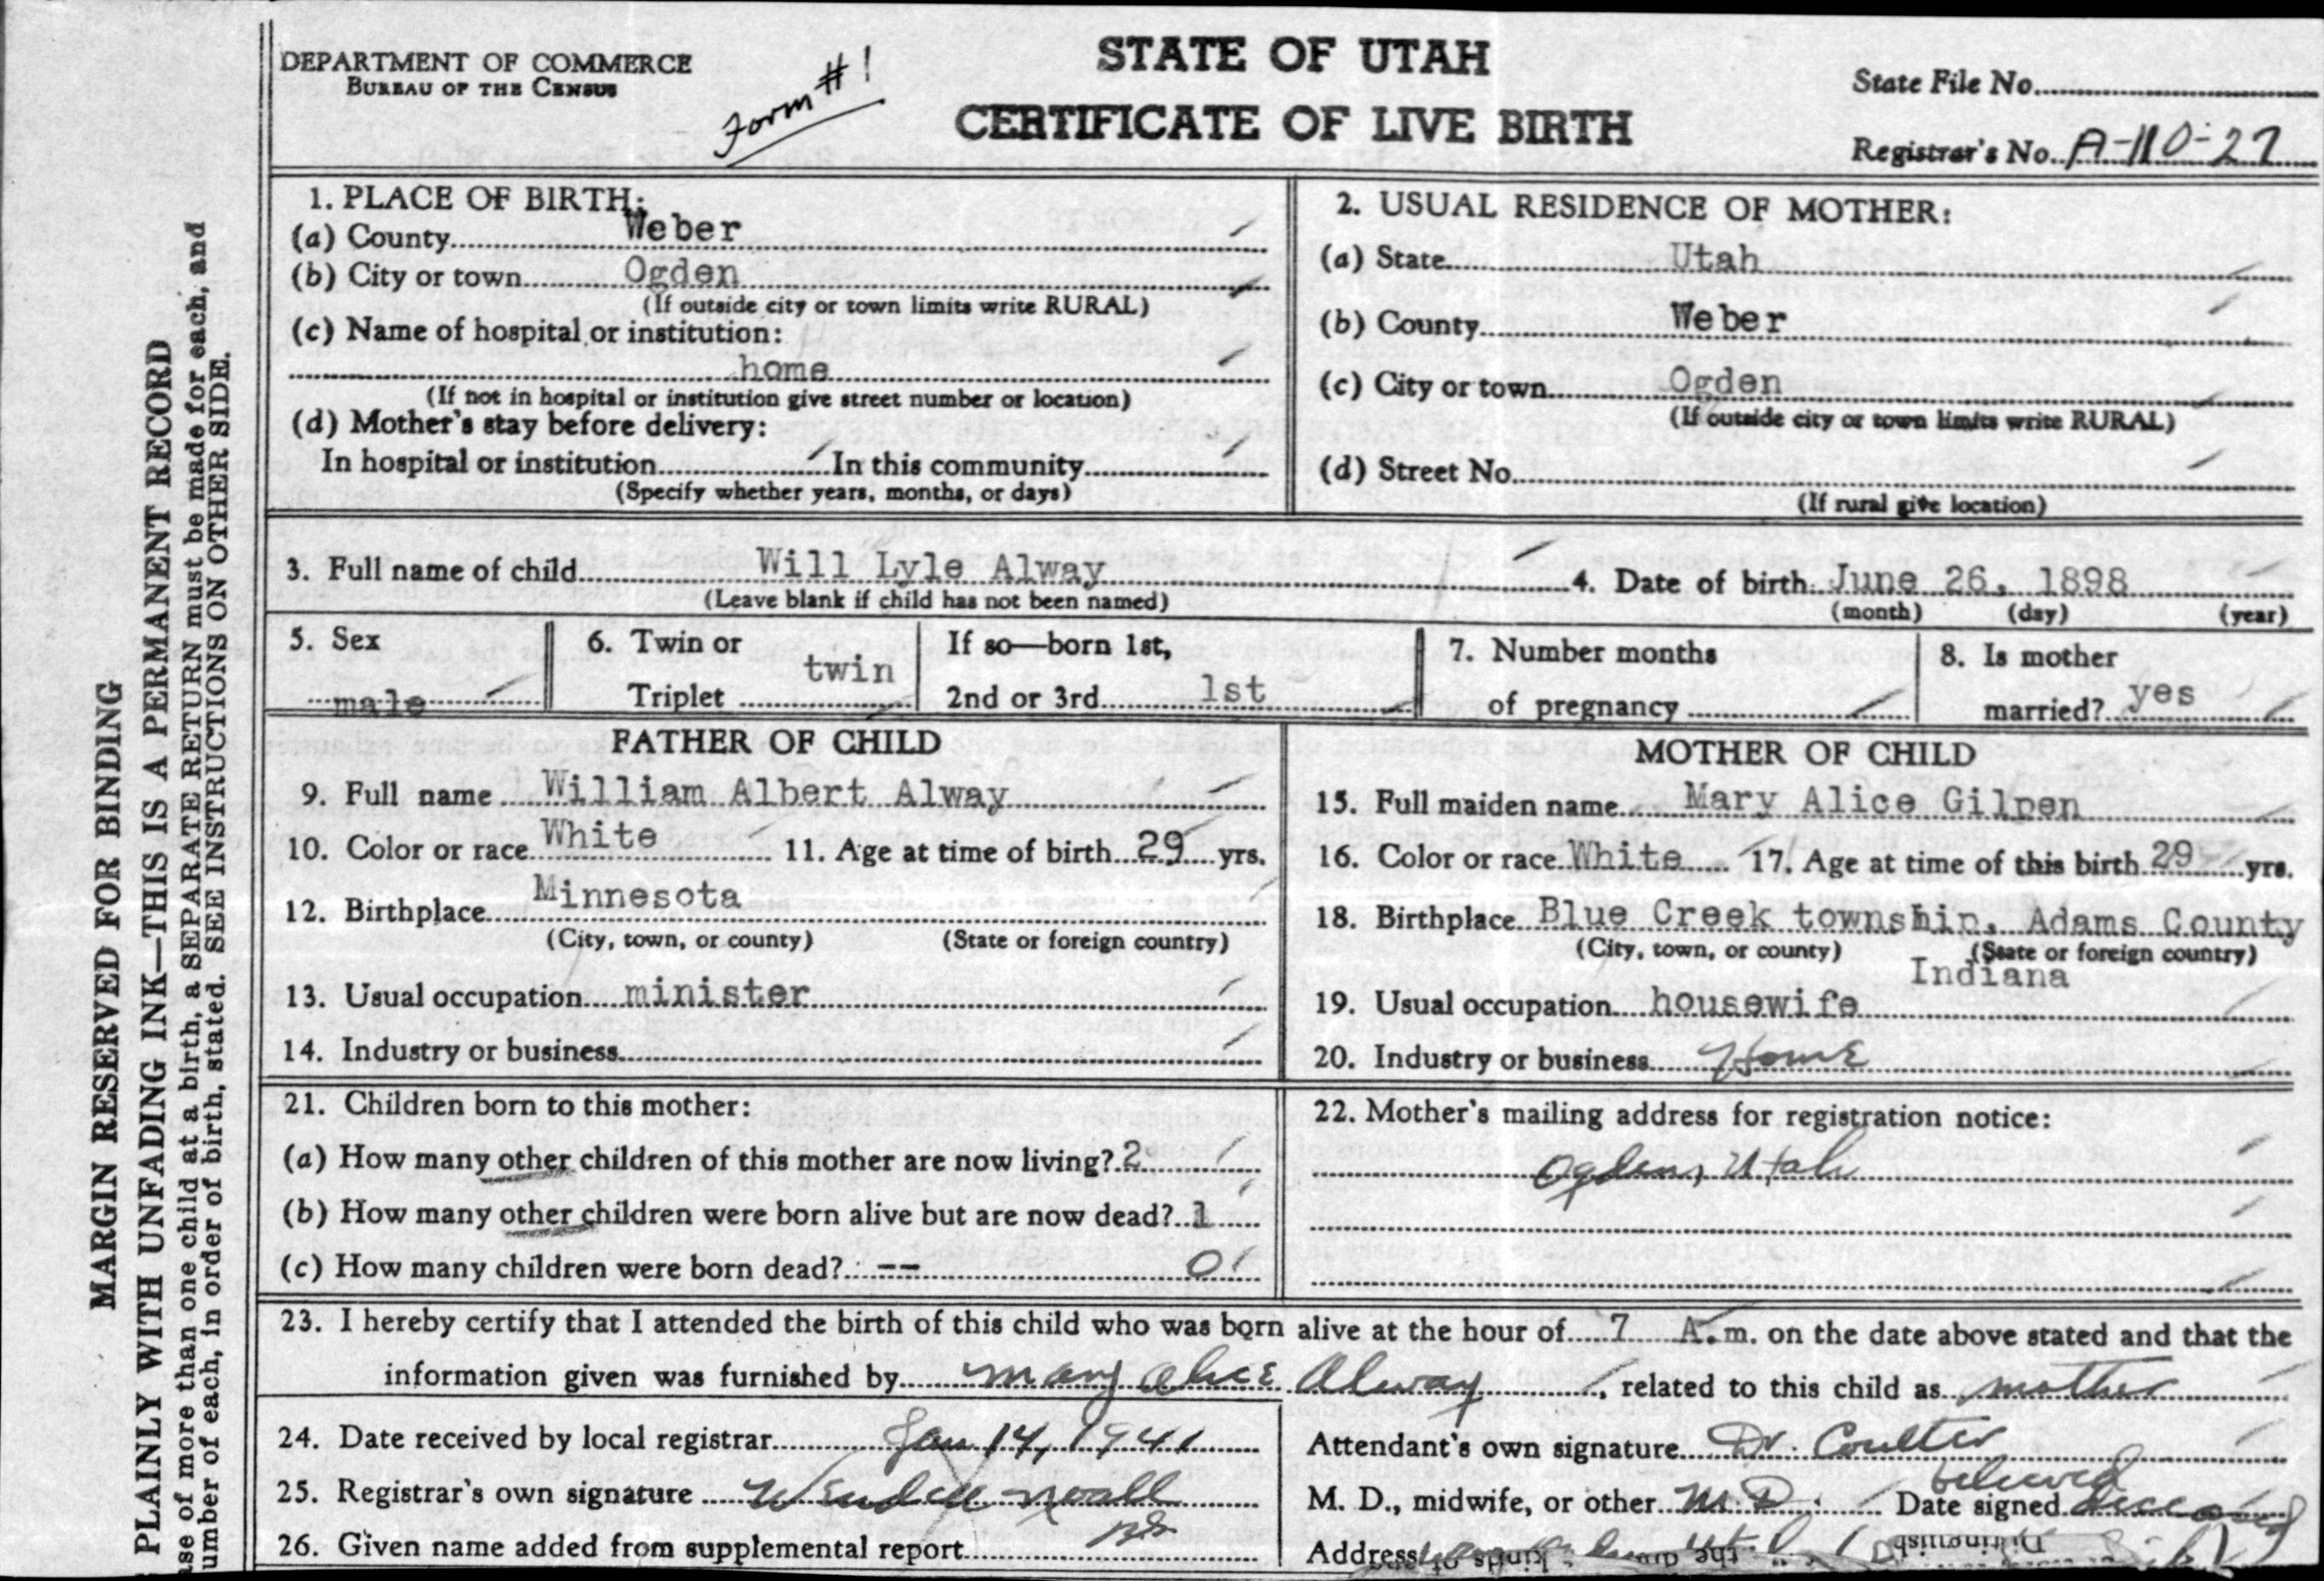 DEPARTMENT OF COMMERCE
BUREAU OF THE CENSUS
Form #1
STATE OF UTAH
CERTIFICATE OF LIVE BIRTH
State File No.
Registrar's No. A-110-27
MARGIN RESERVED FOR BINDING
PLAINLY WITH UNFADING INK—THIS IS A PERMANENT RECORD
ase of more than one child at a birth, a SEPARATE RETURN must be made for each, and
umber of each, in order of birth, stated. SEE INSTRUCTIONS ON OTHER SIDE.
1. PLACE OF BIRTH:
(a) County Weber
(b) City or town Ogden
(If outside city or town limits write RURAL)
(c) Name of hospital or institution:
home
(If not in hospital or institution give street number or location)
(d) Mother's stay before delivery:
In hospital or institution In this community
(Specify whether years, months, or days)
2. USUAL RESIDENCE OF MOTHER:
(a) State Utah
(b) County Weber
(c) City or town Ogden
(If outside city or town limits write RURAL)
(d) Street No.
(If rural give location)
3. Full name of child Will Lyle Alway 4. Date of birth June 26, 1898
(Leave blank if child has not been named) (month) (day) (year)
5. Sex
male
6. Twin or
Triplet twin
If so—born 1st,
2nd or 3rd 1st
7. Number months
of pregnancy
8. Is mother
married? yes
FATHER OF CHILD
9. Full name William Albert Alway
10. Color or race White 11. Age at time of birth 29 yrs.
12. Birthplace Minnesota
(City, town, or county) (State or foreign country)
13. Usual occupation minister
14. Industry or business
MOTHER OF CHILD
15. Full maiden name Mary Alice Gilpen
16. Color or race White 17. Age at time of this birth 29 yrs.
18. Birthplace Blue Creek township, Adams County
(City, town, or county) (State or foreign country)
Indiana
19. Usual occupation housewife
20. Industry or business Home
21. Children born to this mother:
(a) How many other children of this mother are now living? 2
(b) How many other children were born alive but are now dead? 1
(c) How many children were born dead? -- 0
22. Mother's mailing address for registration notice:
Ogden, Utah
23. I hereby certify that I attended the birth of this child who was born alive at the hour of 7 A.m. on the date above stated and that the
information given was furnished by Mary Alice Alway, related to this child as mother
24. Date received by local registrar Jan 14, 1941
25. Registrar's own signature Wendell Noall
26. Given name added from supplemental report
Attendant's own signature Dr. Coulter
believed
M. D., midwife, or other M.D. Date signed deceased
Address